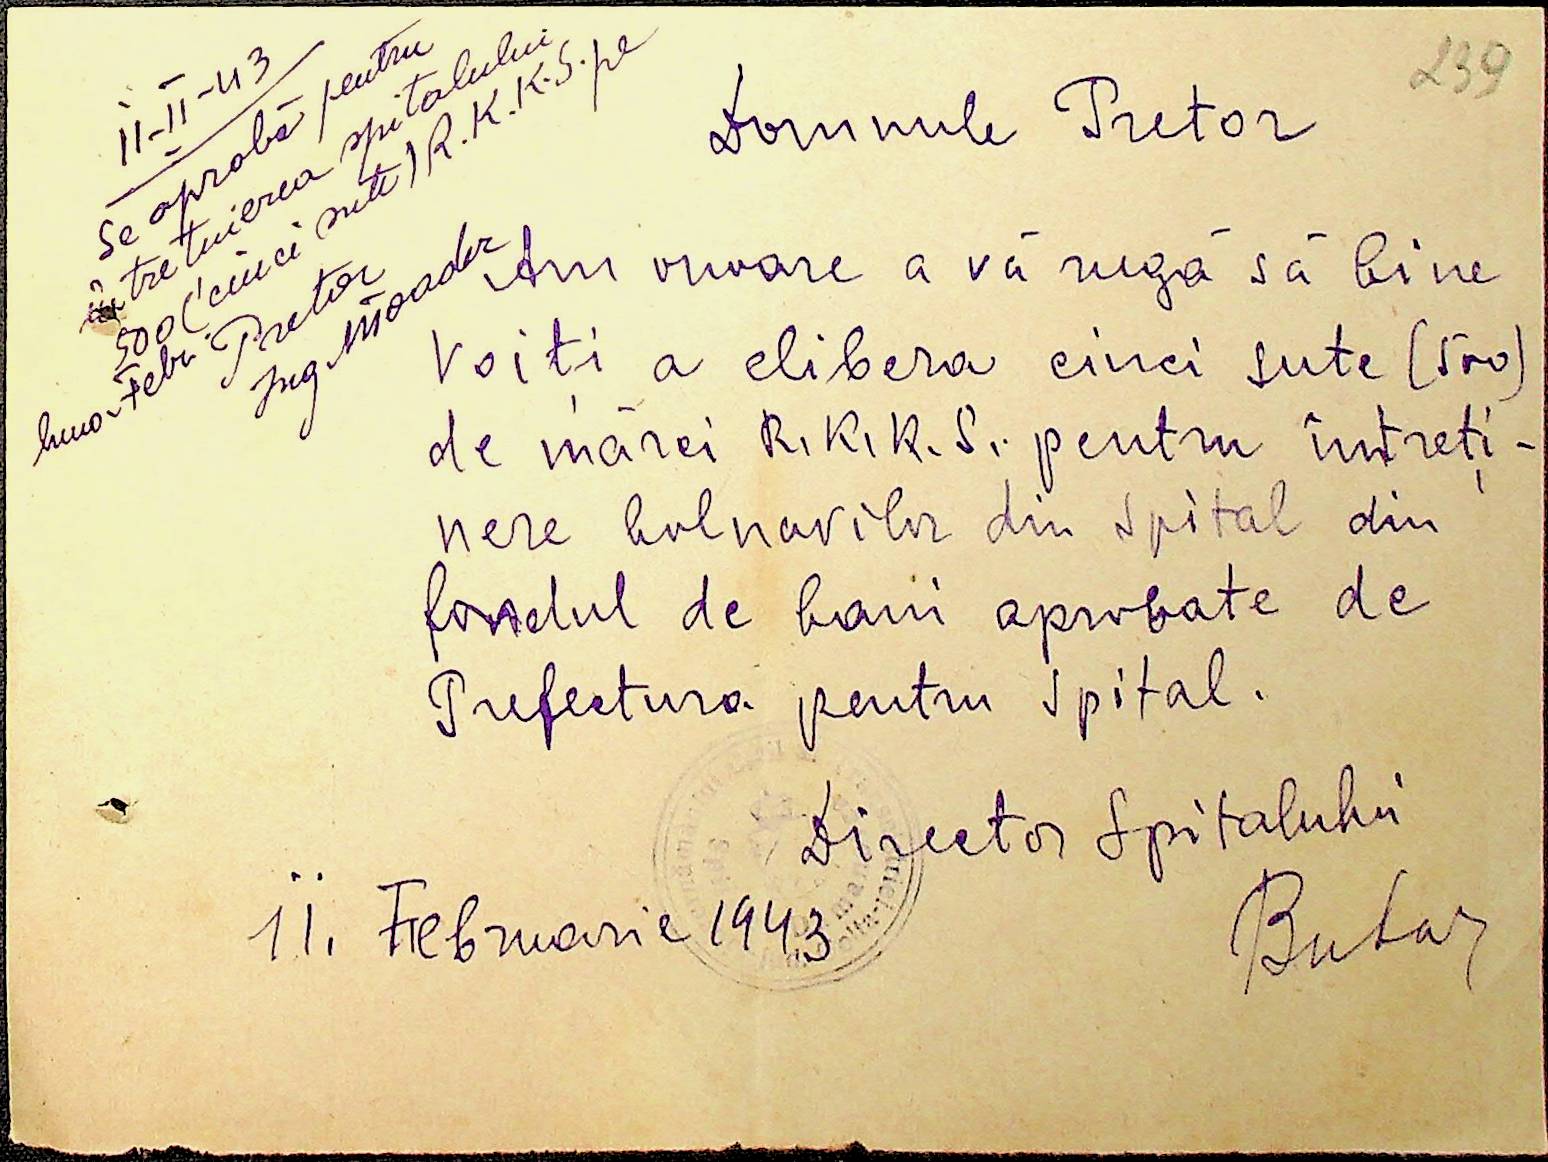 239
11-II-43
Se aprobă pentru
întreținerea spitalului
500 (cinci sute) R.K.K.S. pe
luna Febr.
Pretor
Ing
Domnule Pretor
Am onoare a vă rugă să bine
Voiti a elibera cinci sute (500)
de mărci R.K.K.S. pentru întreți-
nere bolnavilor din Spital din
fondul de bani aprobate de
Prefectura pentru Spital.
Director Spitalului
11. Februarie 1943